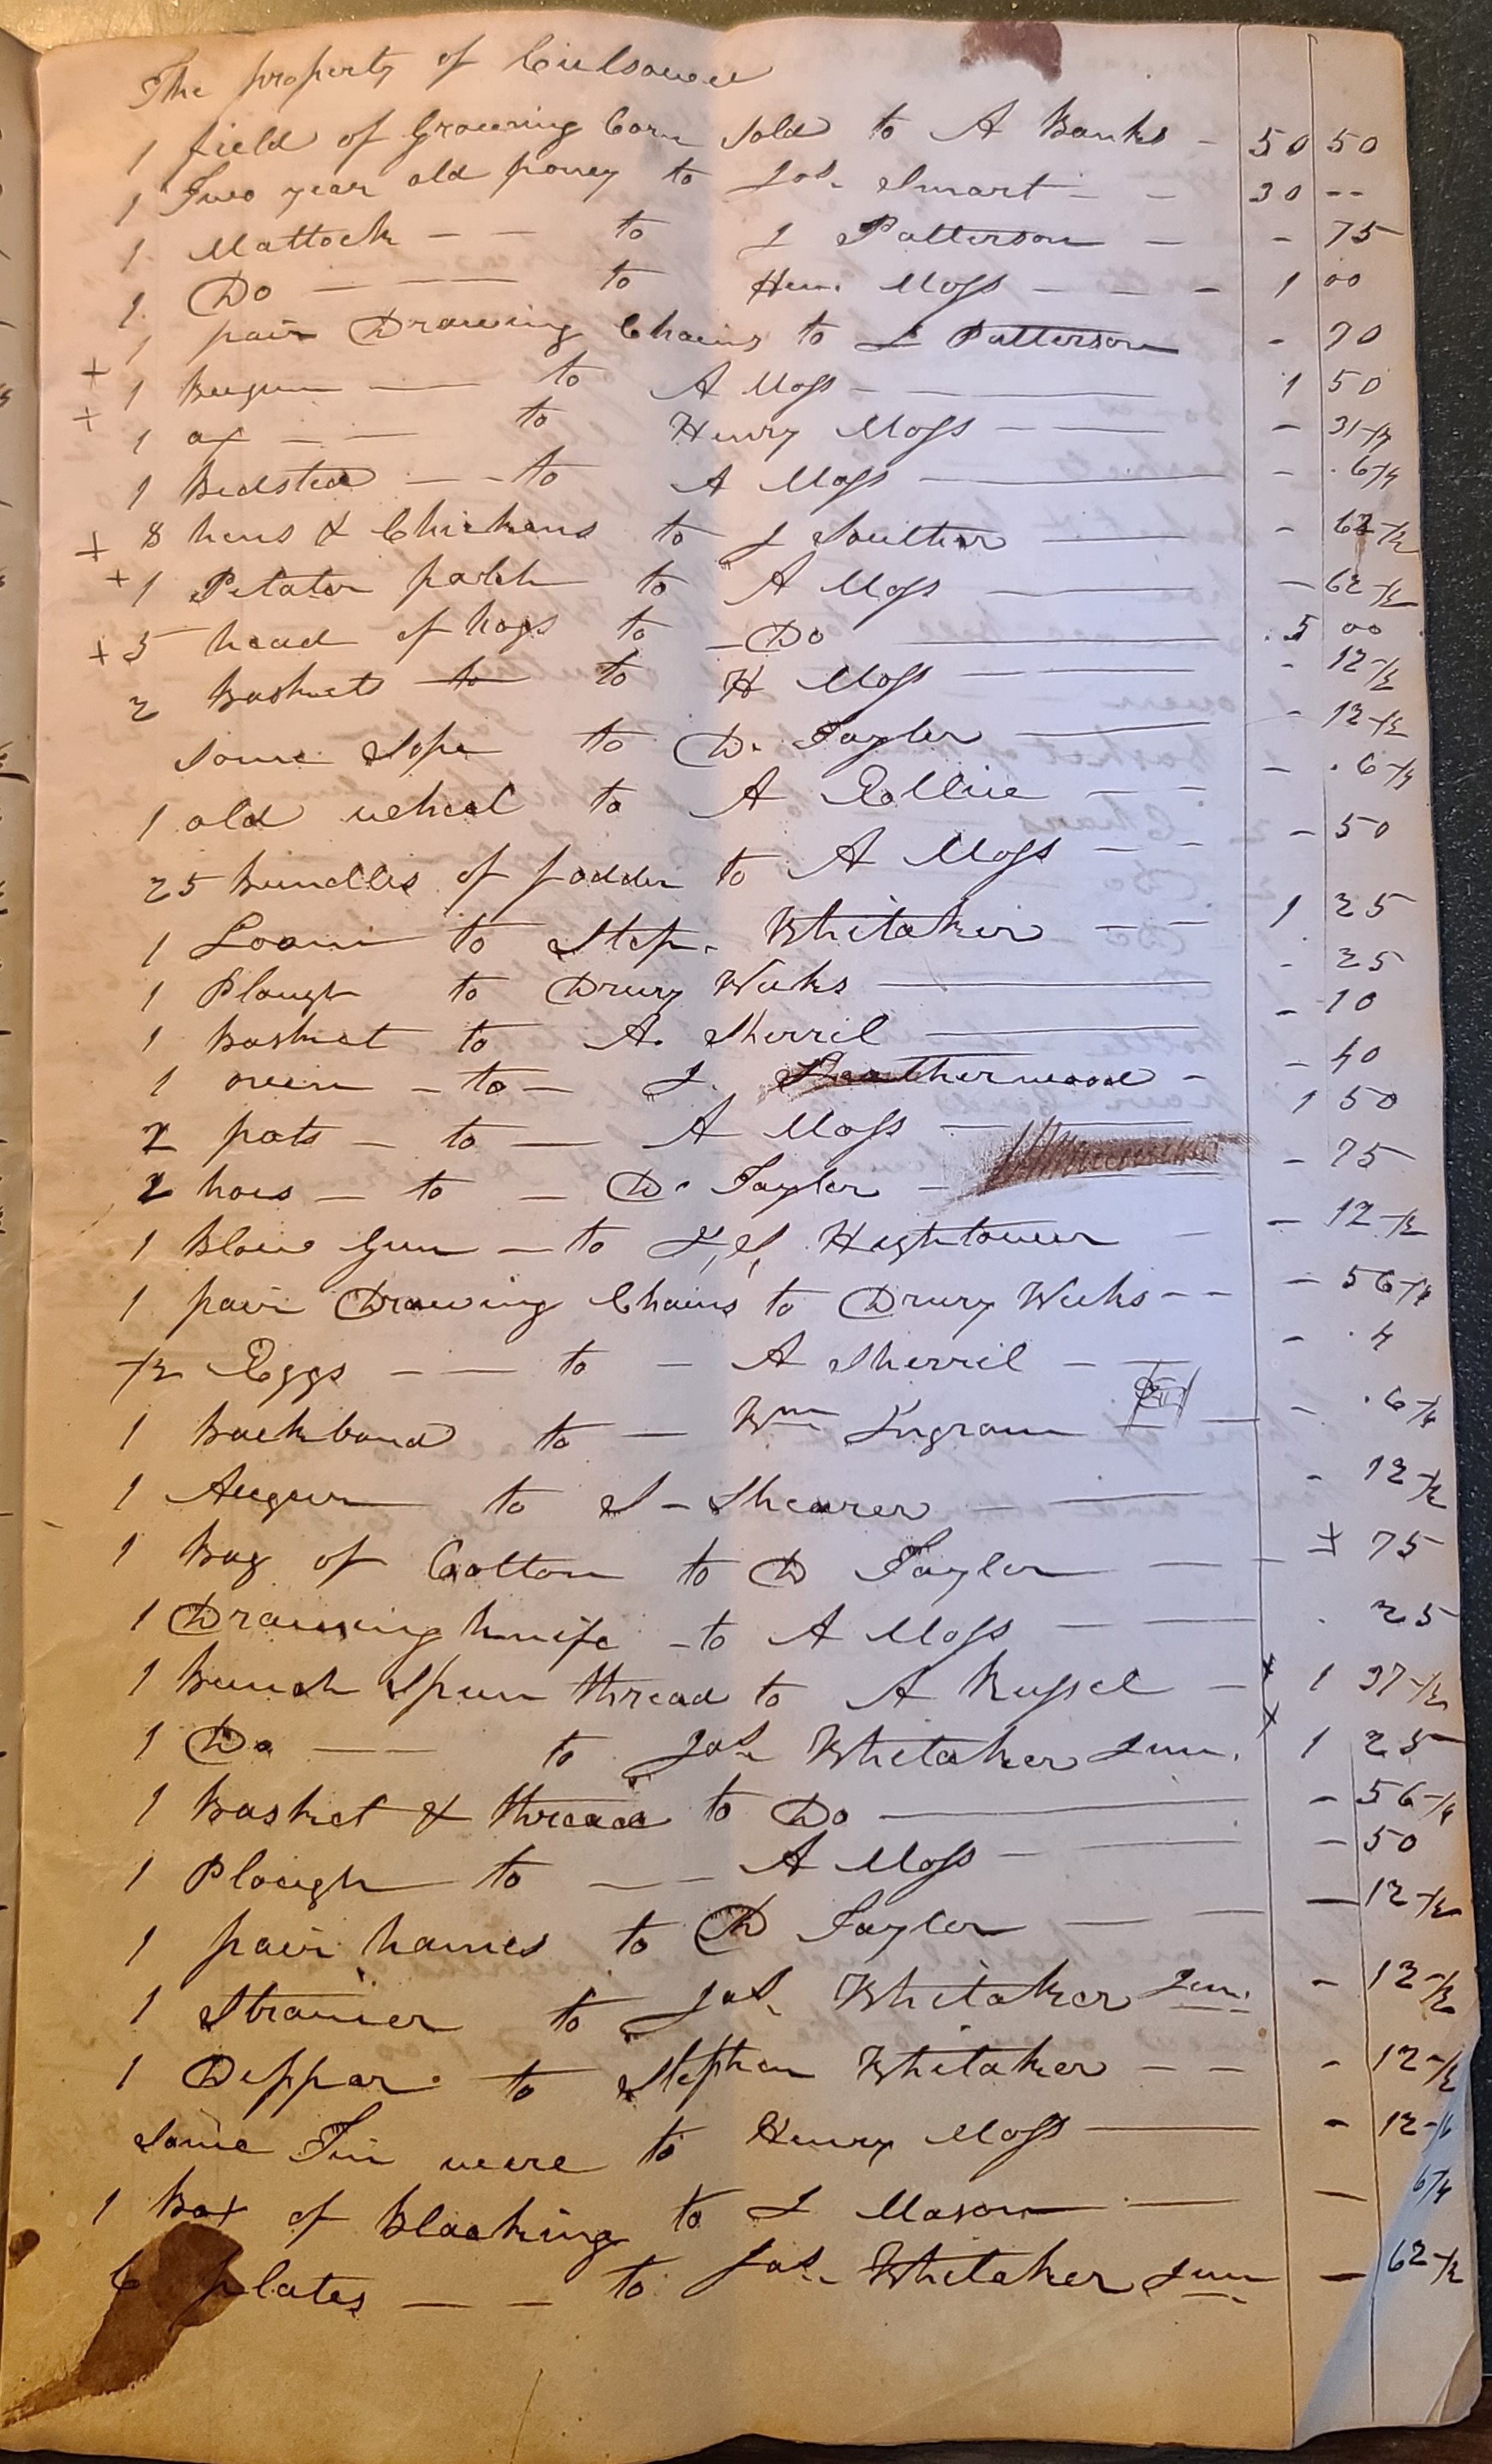 The property of Culsowee
1 field of Growing Corn sold to A Banks - 50 50
1 Two year old poney to Jas. Smart - - 30 --
1 Mattock - - to J Patterson - - 75
1 Do - — to Hen. Moss - - - 1 00
1 pair Drawing Chains to J Patterson - 70
+ 1 Keegun — to A Moss - — 1 50
+ 1 ax - — to Henry Moss - — - 31 1/4
1 Bedsted - - to A Moss — - . 6 1/4
+ 8 hens & Chickens to J Soulther — - 62 1/2
+ 1 Petator patch to A Moss — - 62 1/2
+ 5 head of hogs to - Do — . 5 00
2 Baskets to to H Moss — - 12 1/2
some Sope to D. Tayler — - 12 1/2
1 old wheel to A Collie - - - . 6 1/4
25 bundles of fodder to A Moss - - - 50
1 Loom to Step. Whitaker - - 1 25
1 Plough to Drury Weeks — - 25
1 Basket to A. Sherril — - 10
1 oven - to - J. Leatherwood - - 40
2 pots - to — A Moss — 1 50
2 hoes - to - D. Tayler - - 75
1 Blow Gun - to J, S, Hightower - - 12 1/2
1 pair Drawing Chains to Drury Weeks - - - 56 1/4
1/2 Eggs - — to - A Sherril - - - . 4
1 Backband to — Wm Ingram — - . 6 1/4
1 Augur to S - Shearer - — - 12 1/2
1 Bag of Cotton to D Tayler — - + 75
1 Drawing knife - to A Moss - — . 25
1 Bunch Spun thread to A Russel - + 1 37 1/2
1 Do - - to Jas. Whitaker Jun. + 1 25
1 Basket & thread to Do — - 56 1/4
1 Plough to — - A Moss - — - 50
1 pair hames to D Tayler — - - 12 1/2
1 Strainer to Jas. Whitaker Jun. - 12 1/2
1 Dippar to Stephen Whitaker - - - 12 1/2
some Tin were to Henry Moss — - 12 1/2
1 Box of Blacking to J Mason — - 6 1/4
6 plates - - to Jas. Whitaker Jun - 62 1/2